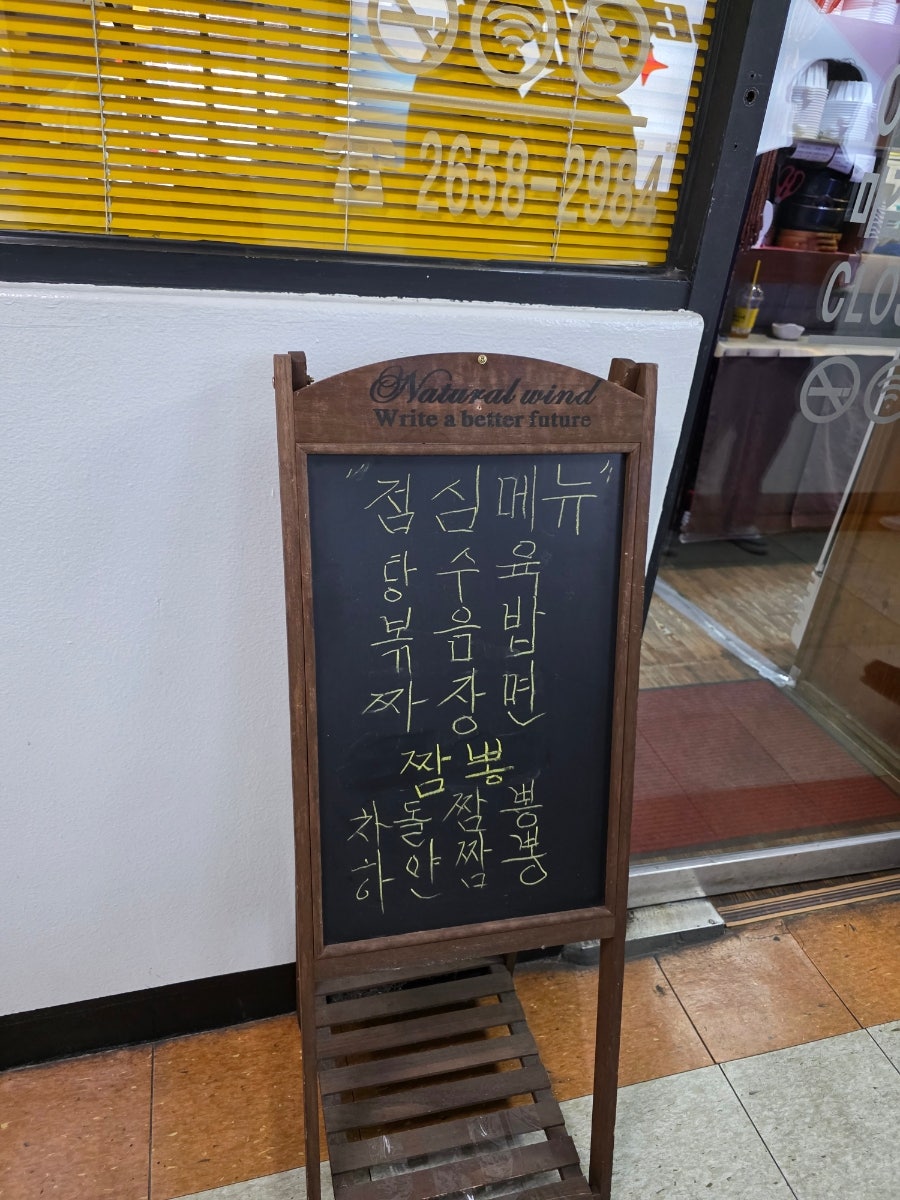 2658-2984
CLOS
Natural wind
Write a better future
"점심메뉴"
탕수육
볶음밥
짜장면
짬뽕
차돌짬뽕
하얀짬뽕